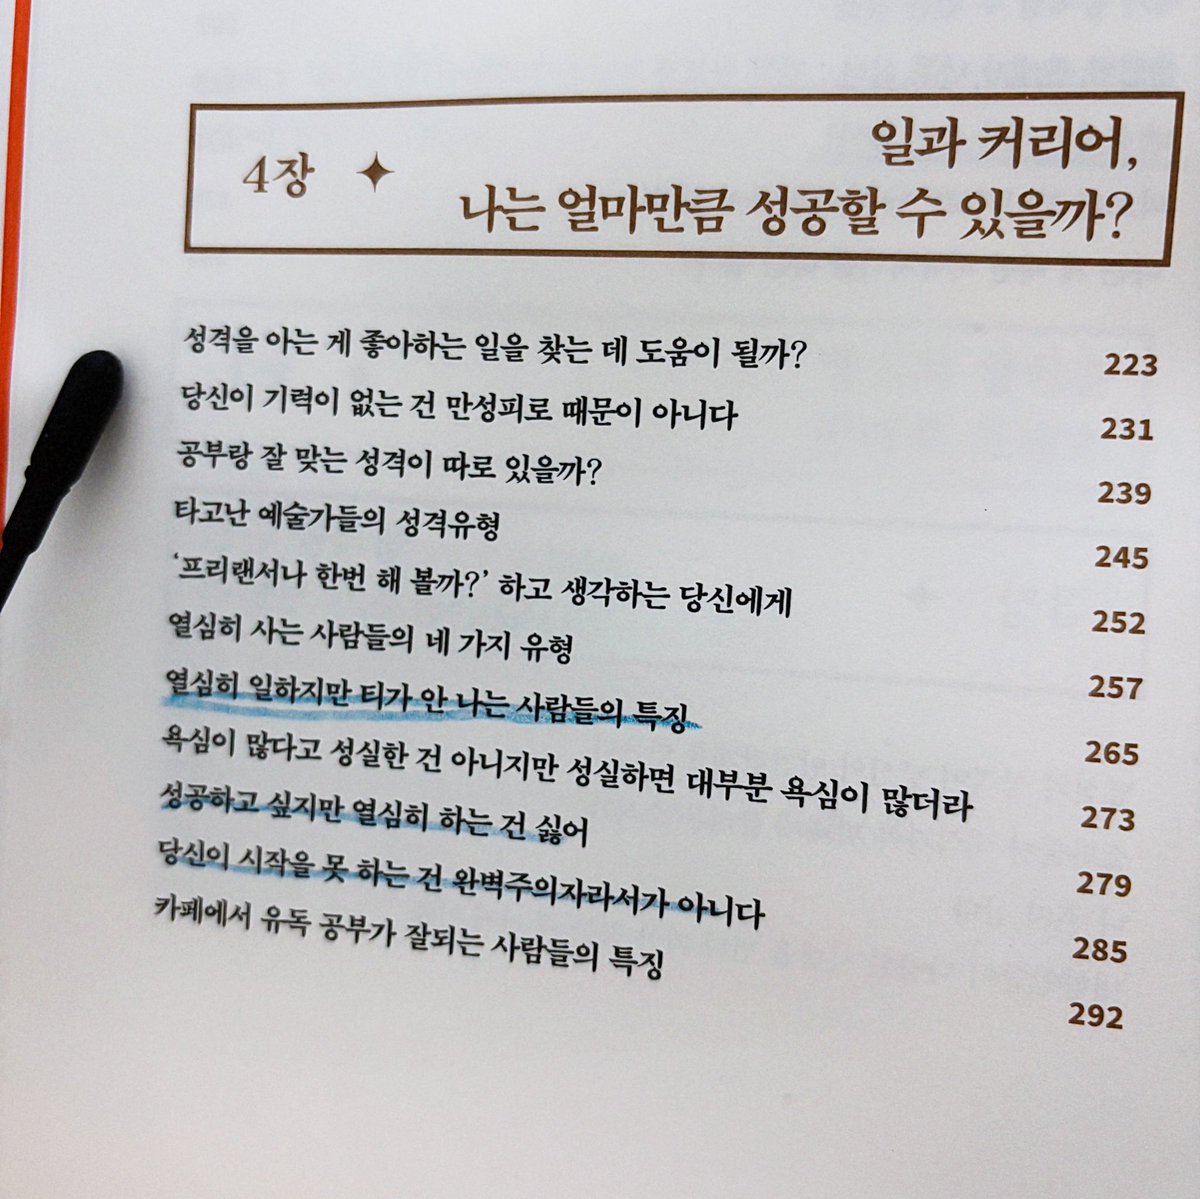 4장
일과 커리어,
나는 얼마만큼 성공할 수 있을까?
성격을 아는 게 좋아하는 일을 찾는 데 도움이 될까? 223
당신이 기력이 없는 건 만성피로 때문이 아니다 231
공부랑 잘 맞는 성격이 따로 있을까? 239
타고난 예술가들의 성격유형 245
‘프리랜서나 한번 해 볼까?’ 하고 생각하는 당신에게 252
열심히 사는 사람들의 네 가지 유형 257
열심히 일하지만 티가 안 나는 사람들의 특징 265
욕심이 많다고 성실한 건 아니지만 성실하면 대부분 욕심이 많더라 273
성공하고 싶지만 열심히 하는 건 싫어 279
당신이 시작을 못 하는 건 완벽주의자라서가 아니다 285
카페에서 유독 공부가 잘되는 사람들의 특징 292